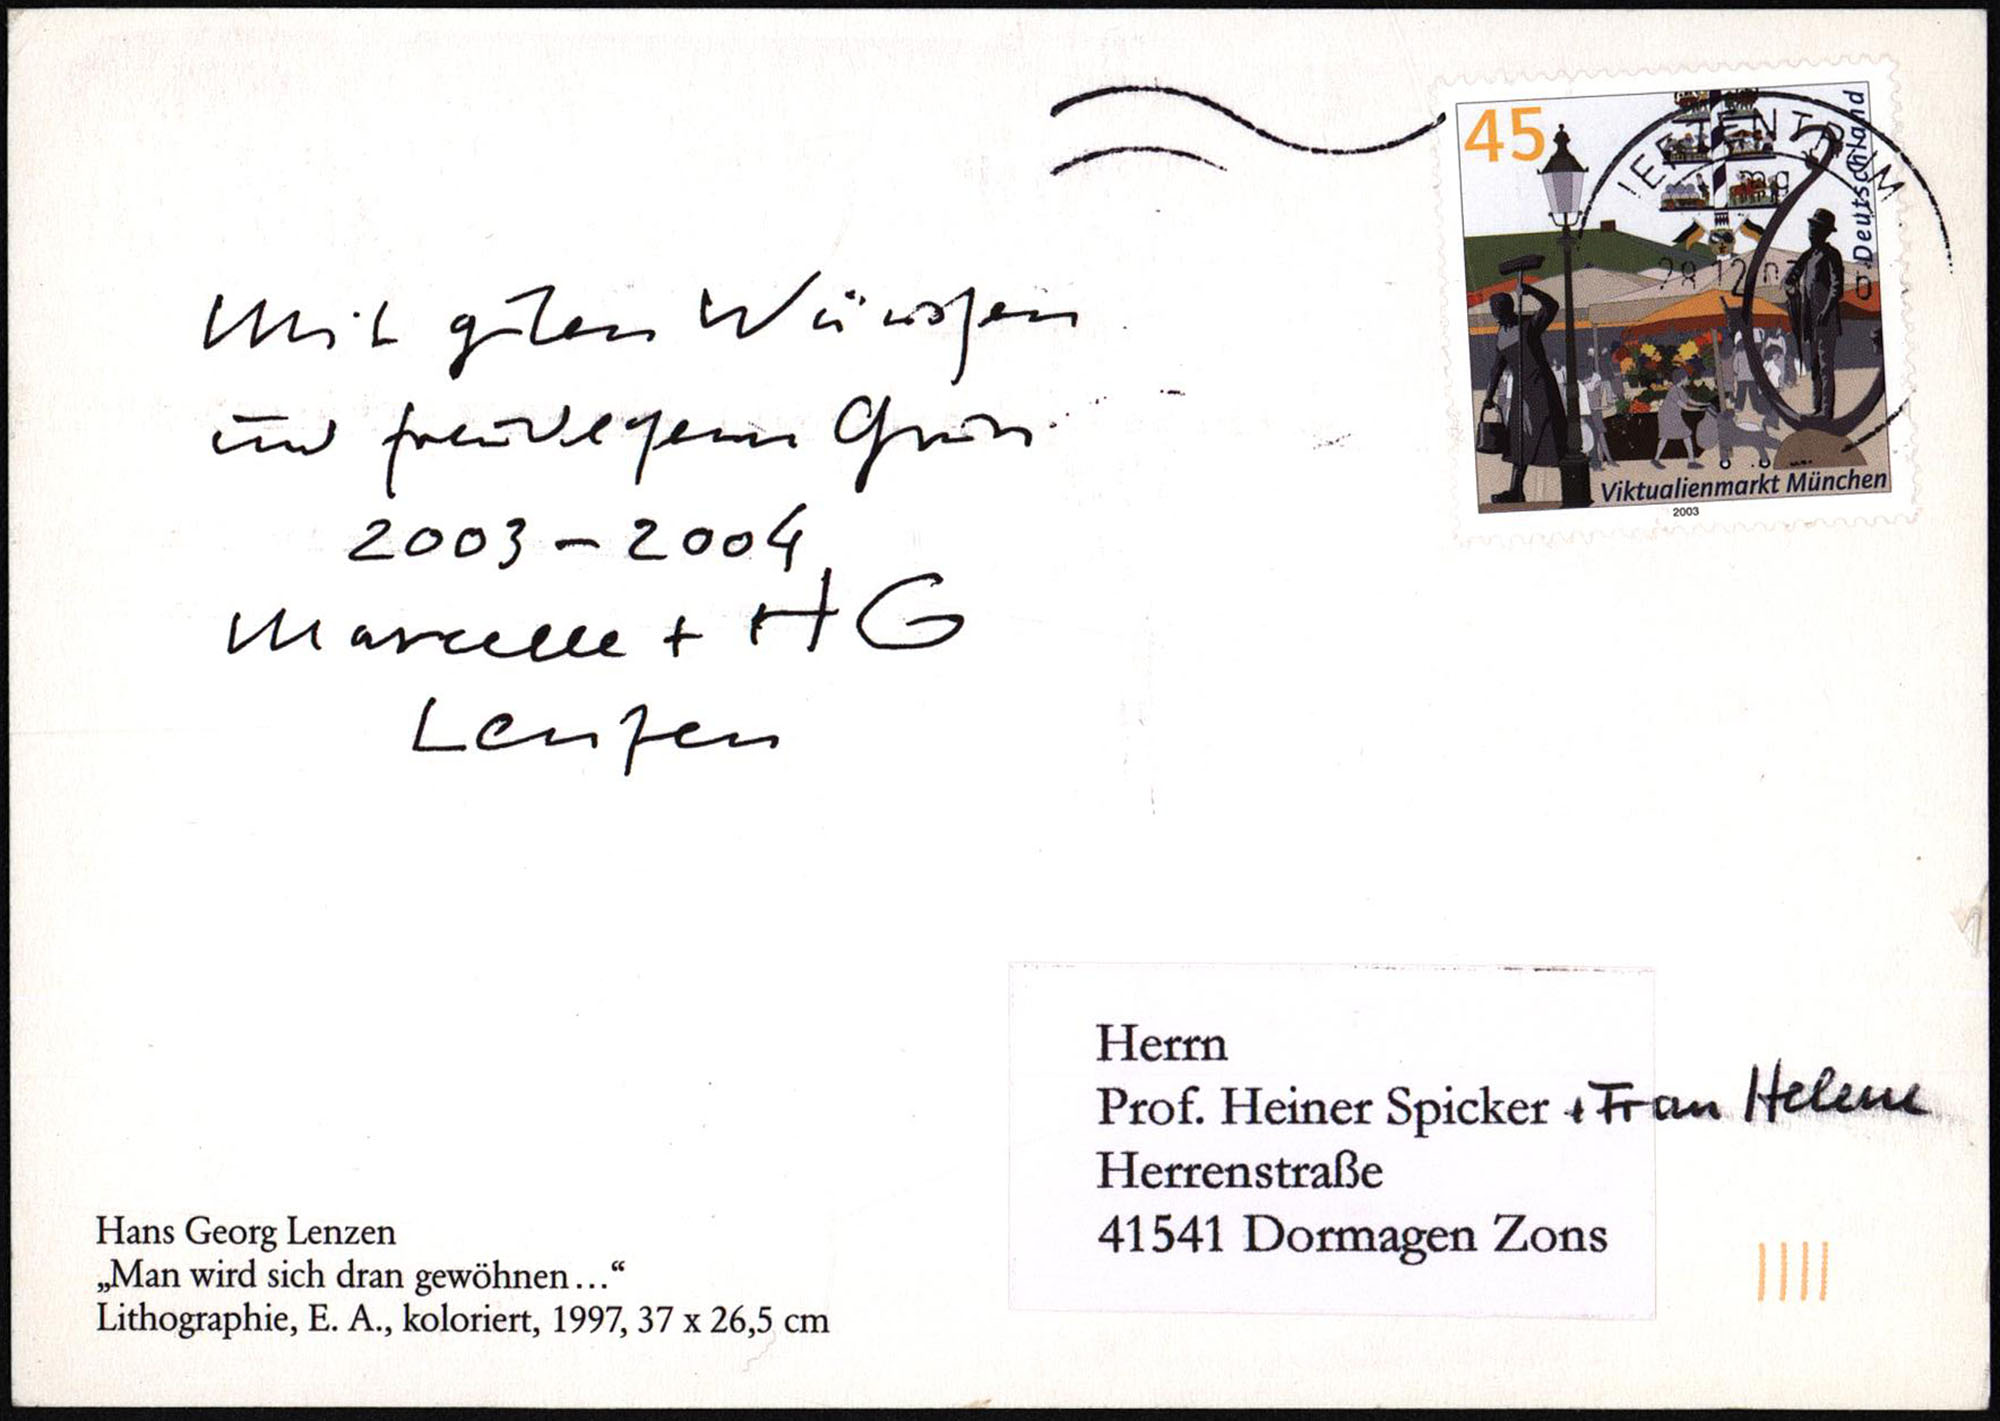 Mit guten Wünschen
und freundlichem Gruß
2003 – 2004
Marcelle + HG
Lenzen
45
Deutschland
Viktualienmarkt München
2003
Herrn
Prof. Heiner Spicker + Frau Helene
Herrenstraße
41541 Dormagen Zons
Hans Georg Lenzen
„Man wird sich dran gewöhnen…“
Lithographie, E. A., koloriert, 1997, 37 x 26,5 cm